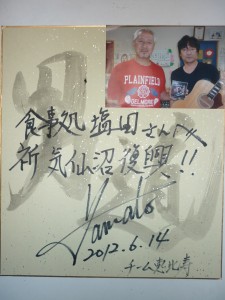 食事処 塩田さん江
祈気仙沼復興!!
Yamato
2012.6.14
チーム恵比寿
PLAINFIELD